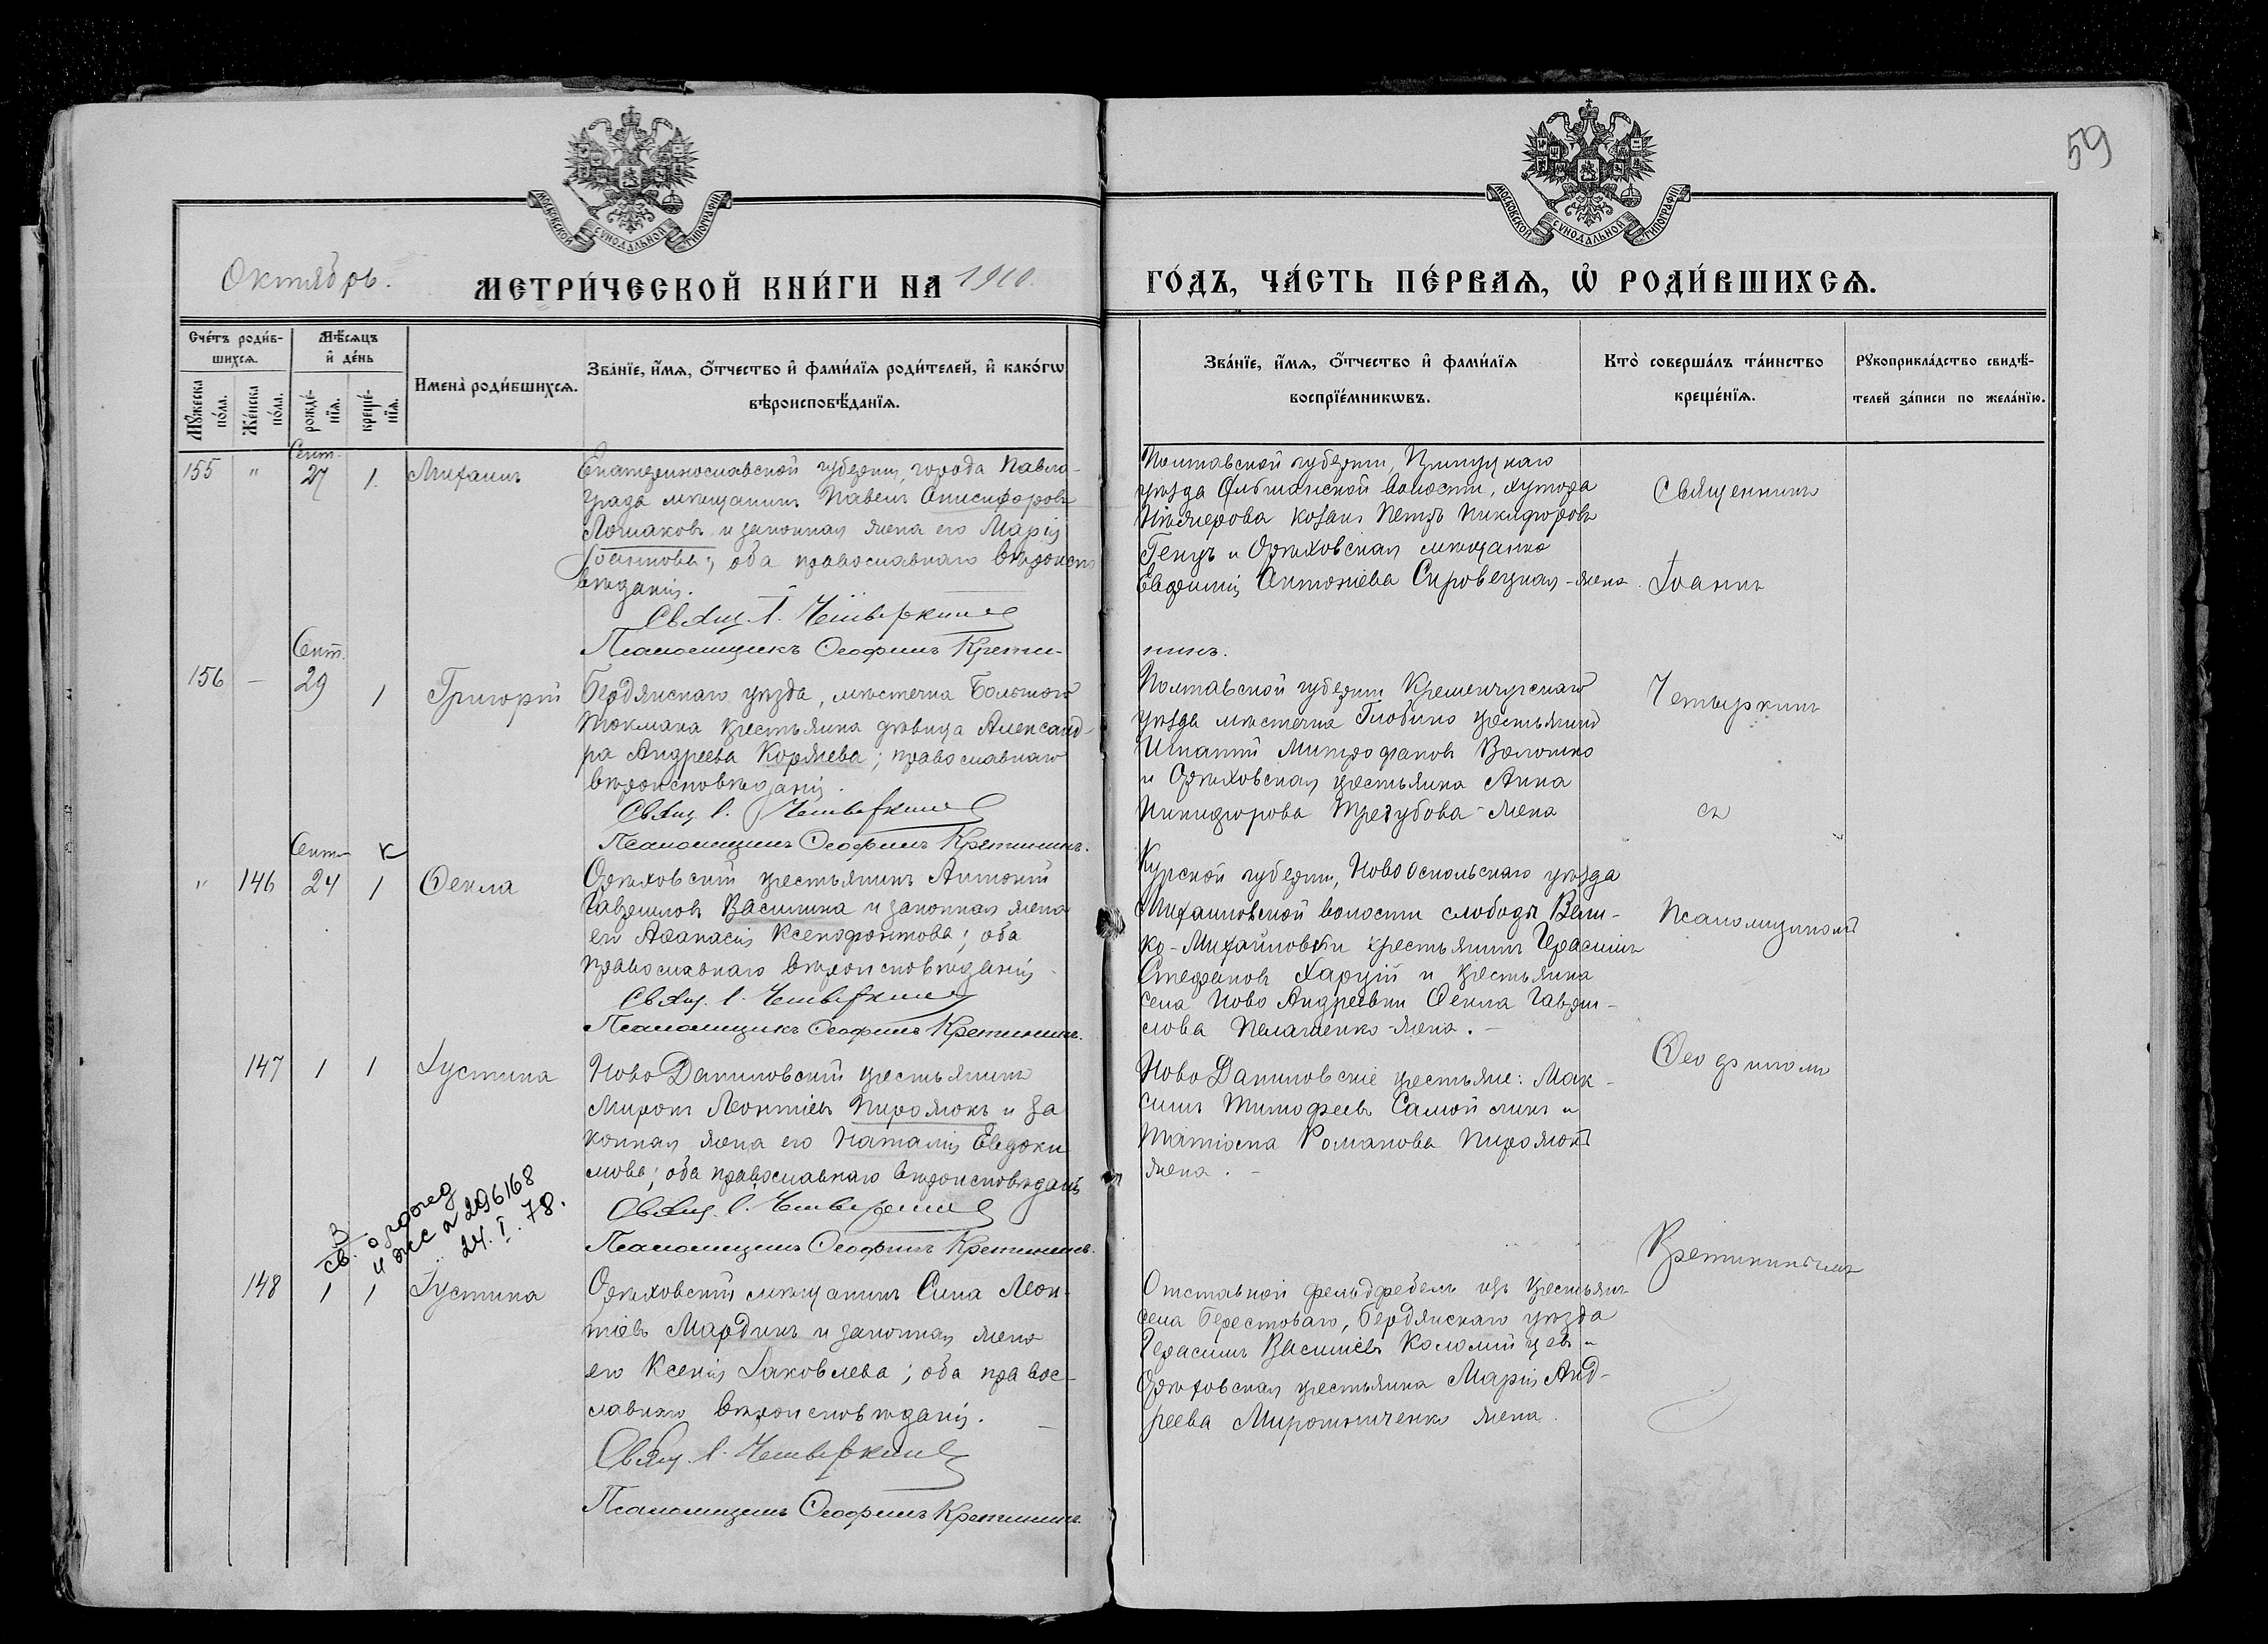 59
МОСКОВСКОЙ СѴНОДАЛЬНОЙ ТИПОГРАФІИ
МОСКОВСКОЙ СѴНОДАЛЬНОЙ ТИПОГРАФІИ
Октябрь.
МЕТРИ́ЧЕСКОЙ КНИ́ГИ НА 1910.
ГО́ДЪ, ЧА́СТЬ ПЕ́РВАѦ, Ѡ҆ РОДИ́ВШИХСѦ.
Сче́тъ роди́в-
шихсѧ.
Мꙋ́жеска по́ла.
Же́нска по́ла.
Мѣ́сѧцъ
и҆ де́нь
рожде́-
нїѧ.
креще́-
нїѧ.
Имена̀ роди́вшихсѧ.
Зва́нїе, и҆́мѧ, ѻ҆́тчество и҆ фами́лїѧ роди́телей, и҆ како́гѡ
вѣроисповѣ́данїѧ.
Зва́нїе, и҆́мѧ, ѻ҆́тчество и҆ фами́лїѧ
воспрїе́мникѡвъ.
Кто̀ соверша́лъ та́инство
креще́нїѧ.
Рꙋкоприкла́дство свидѣ́-
телей за́писи по жела́нїю.
155 " Сент. 27 1. Михаилъ
Екатеринославской губерніи, города Павло-
града мѣщанинъ Павелъ Онисифоровъ
Лошаковъ и законная жена его Марія
оба православнаго вѣроиспо
вѣданія.
Свящ. І. Четыркинъ
Псаломщикъ Ѳеофилъ Крети-
нинъ.
Полтавской губерніи, Прилуцкаго
уѣзда Ольшанской волости, хутора
козакъ Петръ Никифоровъ
Генцъ и Орѣховская мѣщанка
Евфимія Антоніева Сировецкая-жена.
156 — Сент. 29 1 Григорій
Бердянскаго уѣзда, мѣстечка Большого
Токмака крестьянка дѣвица Александ-
ра Андреева Коряева; православнаго
вѣроисповѣданія.
Свящ. І. Четыркинъ
Псаломщикъ Ѳеофилъ Кретининъ.
Полтавской губерніи Кременчугскаго
уѣзда мѣстечка Глобино крестьянинъ
Игнатій Митрофановъ Волошко
и Орѣховская крестьянка Анна
Никифорова Трегубова-жена
" 146 Сент. 24 к 1 Ѳекла
Орѣховскій крестьянинъ Антоній
Гавриловъ Василина и законная жена
его Аѳанасія Ксенофонтова; оба
православнаго вѣроисповѣданія
Свящ. І. Четыркинъ
Псаломщикъ Ѳеофилъ Кретининъ.
Курской губерніи, Новооскольскаго уѣзда
Михаиловской волости слободы Вели-
ко-Михайловки крестьянинъ Герасимъ
Стефановъ Харцій и крестьянка
села Ново Андреевки Ѳекла Гаври-
лова Пелашенко-жена. —
147 1 1 Іустина
Ново Даниловскій крестьянинъ
Миронъ Леонтіевъ Пирожокъ и за
конная жена его Наталія Евдоки
мова; оба православнаго вѣроисповѣданія
Свящ. І. Четыркинъ
Псаломщикъ Ѳеофилъ Кретининъ.
Ново Даниловскіе крестьяне: Мак-
симъ Тимофеевъ Самойликъ и
Романова Пирожокъ
жена. —
св. о рожд
и ЖС а 296168
24. I. 78.
148 1 1 Іустина
Орѣховскій мѣщанинъ Сила Леон-
тіевъ Мардикъ и законная жена
его Ксенія Іаковлева; оба правос-
славнаго вѣроисповѣданія. —
Свящ. І. Четыркинъ
Псаломщикъ Ѳеофилъ Кретининъ.
Отставной фельдфебель изъ крестьянъ
села Берестоваго, Бердянскаго уѣзда
Герасимъ Василіевъ Коломийцевъ и
Орѣховская крестьянка Марія Анд-
реева Мирошниченко жена.
Священникъ
Іоаннъ
Четыркинъ
съ
Псаломщикомъ
Ѳеофиломъ
Кретининымъ